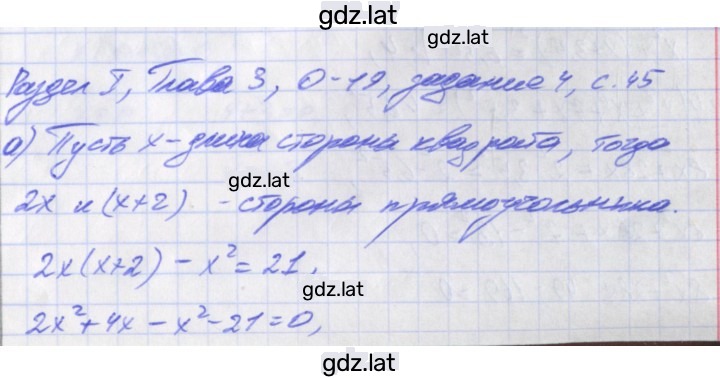 gdz.lat
Раздел I, Глава 3, О-19, задание 4, с. 45
а) Пусть x - длина стороны квадрата, тогда
gdz.lat
2x и (x+2) - стороны прямоугольника.
2x(x+2) - x² = 21,
gdz.lat
2x² + 4x - x² - 21 = 0,
gdz.lat